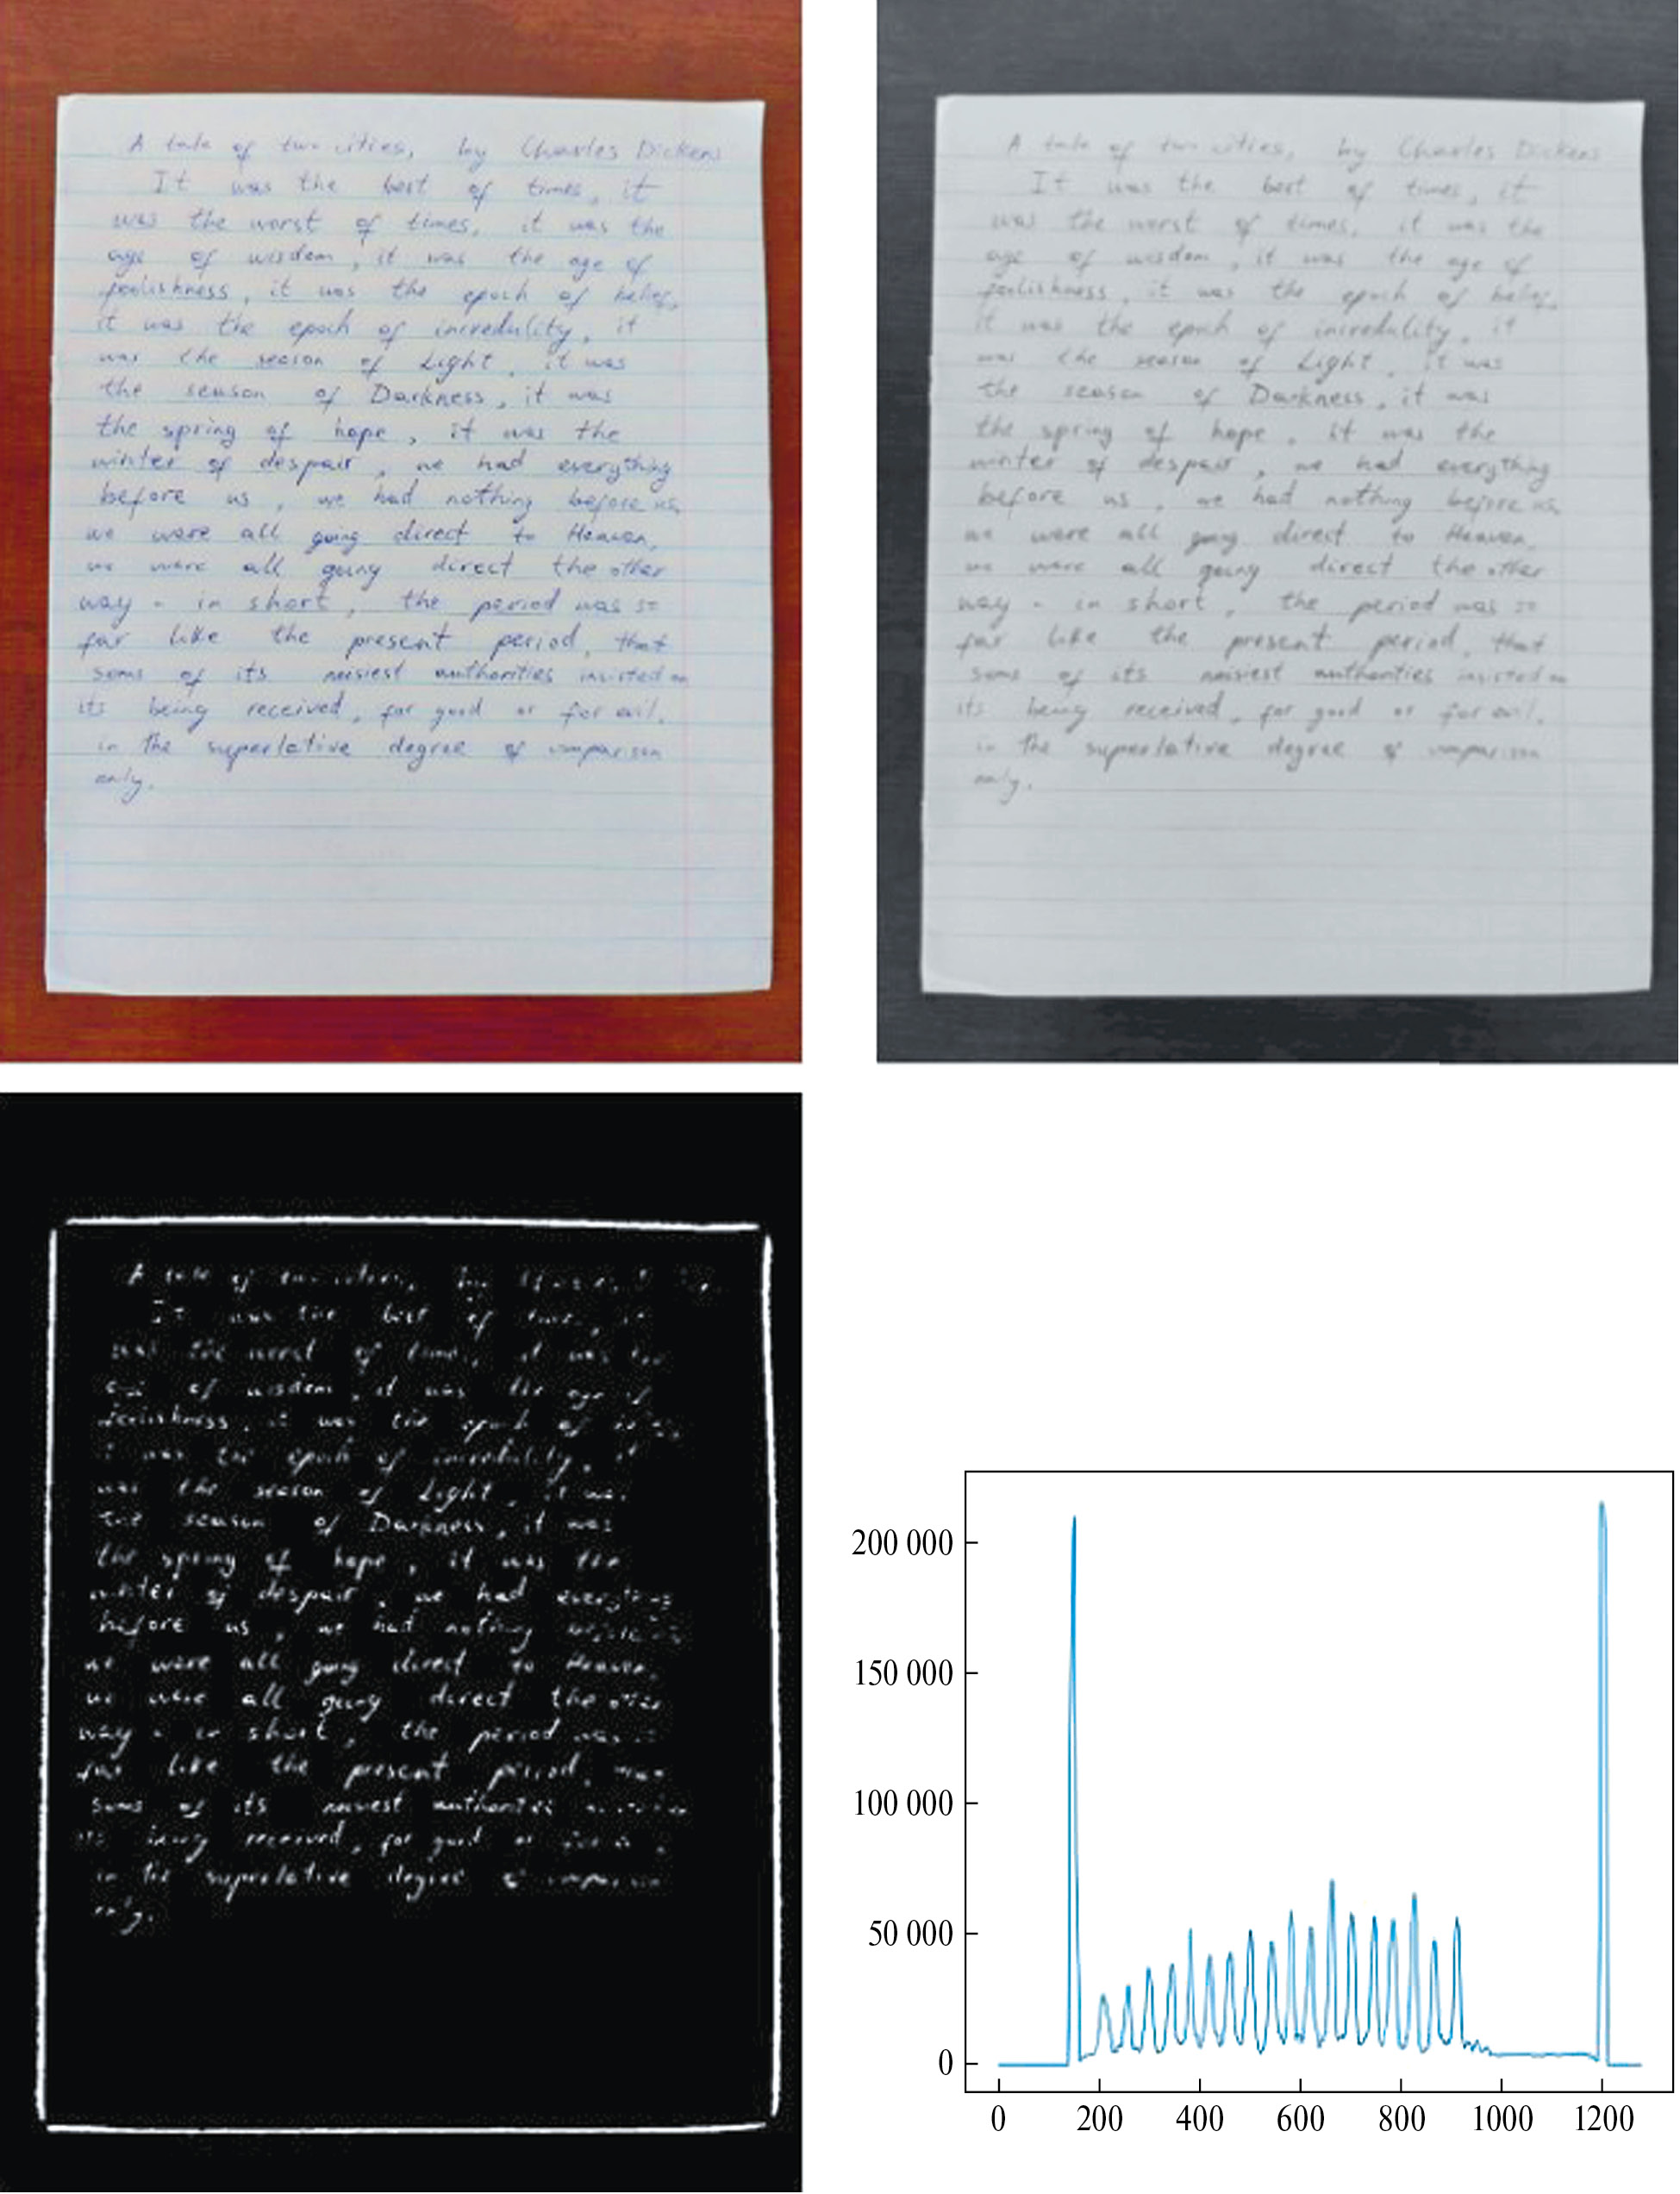 A tale of two cities, by Charles Dickens
It was the best of times, it
was the worst of times, it was the
age of wisdom, it was the age of
foolishness, it was the epoch of belief,
it was the epoch of incredulity, it
was the season of Light, it was
the season of Darkness, it was
the spring of hope, it was the
winter of despair, we had everything
before us, we had nothing before us,
we were all going direct to Heaven,
we were all going direct the other
way - in short, the period was so
far like the present period, that
some of its noisiest authorities insisted on
its being received, for good or for evil,
in the superlative degree of comparison
only.
A tale of two cities, by Charles Dickens
It was the best of times, it
was the worst of times, it was the
age of wisdom, it was the age of
foolishness, it was the epoch of belief,
it was the epoch of incredulity, it
was the season of Light, it was
the season of Darkness, it was
the spring of hope, it was the
winter of despair, we had everything
before us, we had nothing before us,
we were all going direct to Heaven,
we were all going direct the other
way - in short, the period was so
far like the present period, that
some of its noisiest authorities insisted on
its being received, for good or for evil,
in the superlative degree of comparison
only.
A tale of two
It was the best of
was the worst of it was
of wisdom, it was the age of
foolishness, it was the epoch of
was the epoch of incredulity, it
was the season of Light, it was
the season of Darkness, it was
the spring of hope, it was the
winter of despair, we had everything
before us, we had nothing
we were all going direct to Heaven,
we were all going direct the other
way - in short, the period was
far like the present period,
some of its noisiest authorities
its being received, for good or for
in the superlative degree of comparison
only.
200 000
150 000
100 000
50 000
0
0 200 400 600 800 1000 1200